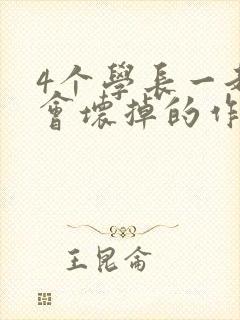 4个學长一起
會壞掉的作
王昆侖